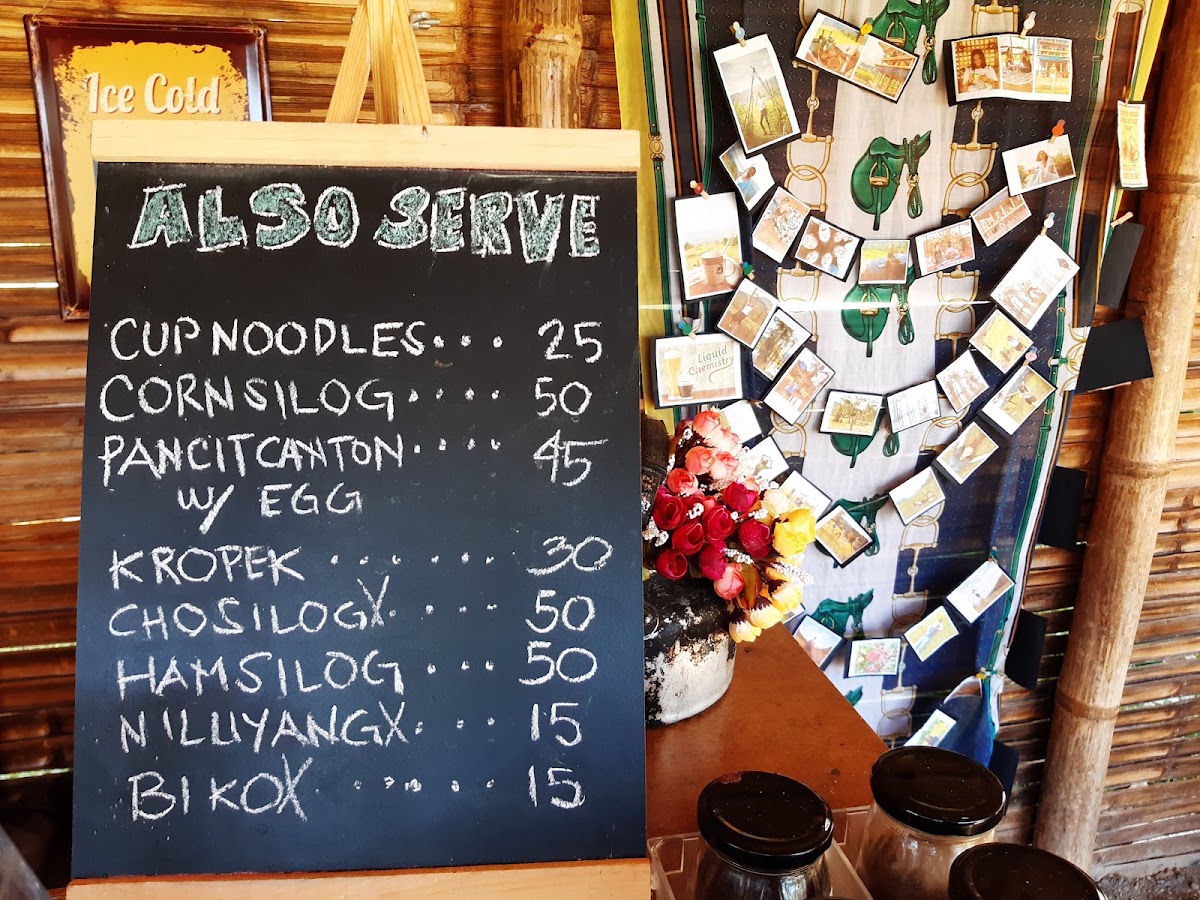 Ice Cold
ALSO SERVE
CUP NOODLES... 25
CORNSILOG.... 50
PANCIT CANTON.... 45
W/ EGG
KROPEK ...... 30
CHOSILOGX.... 50
HAMSILOG... 50
NILUYANGX... 15
BIKOX ...... 15
Liquid
Chemistry